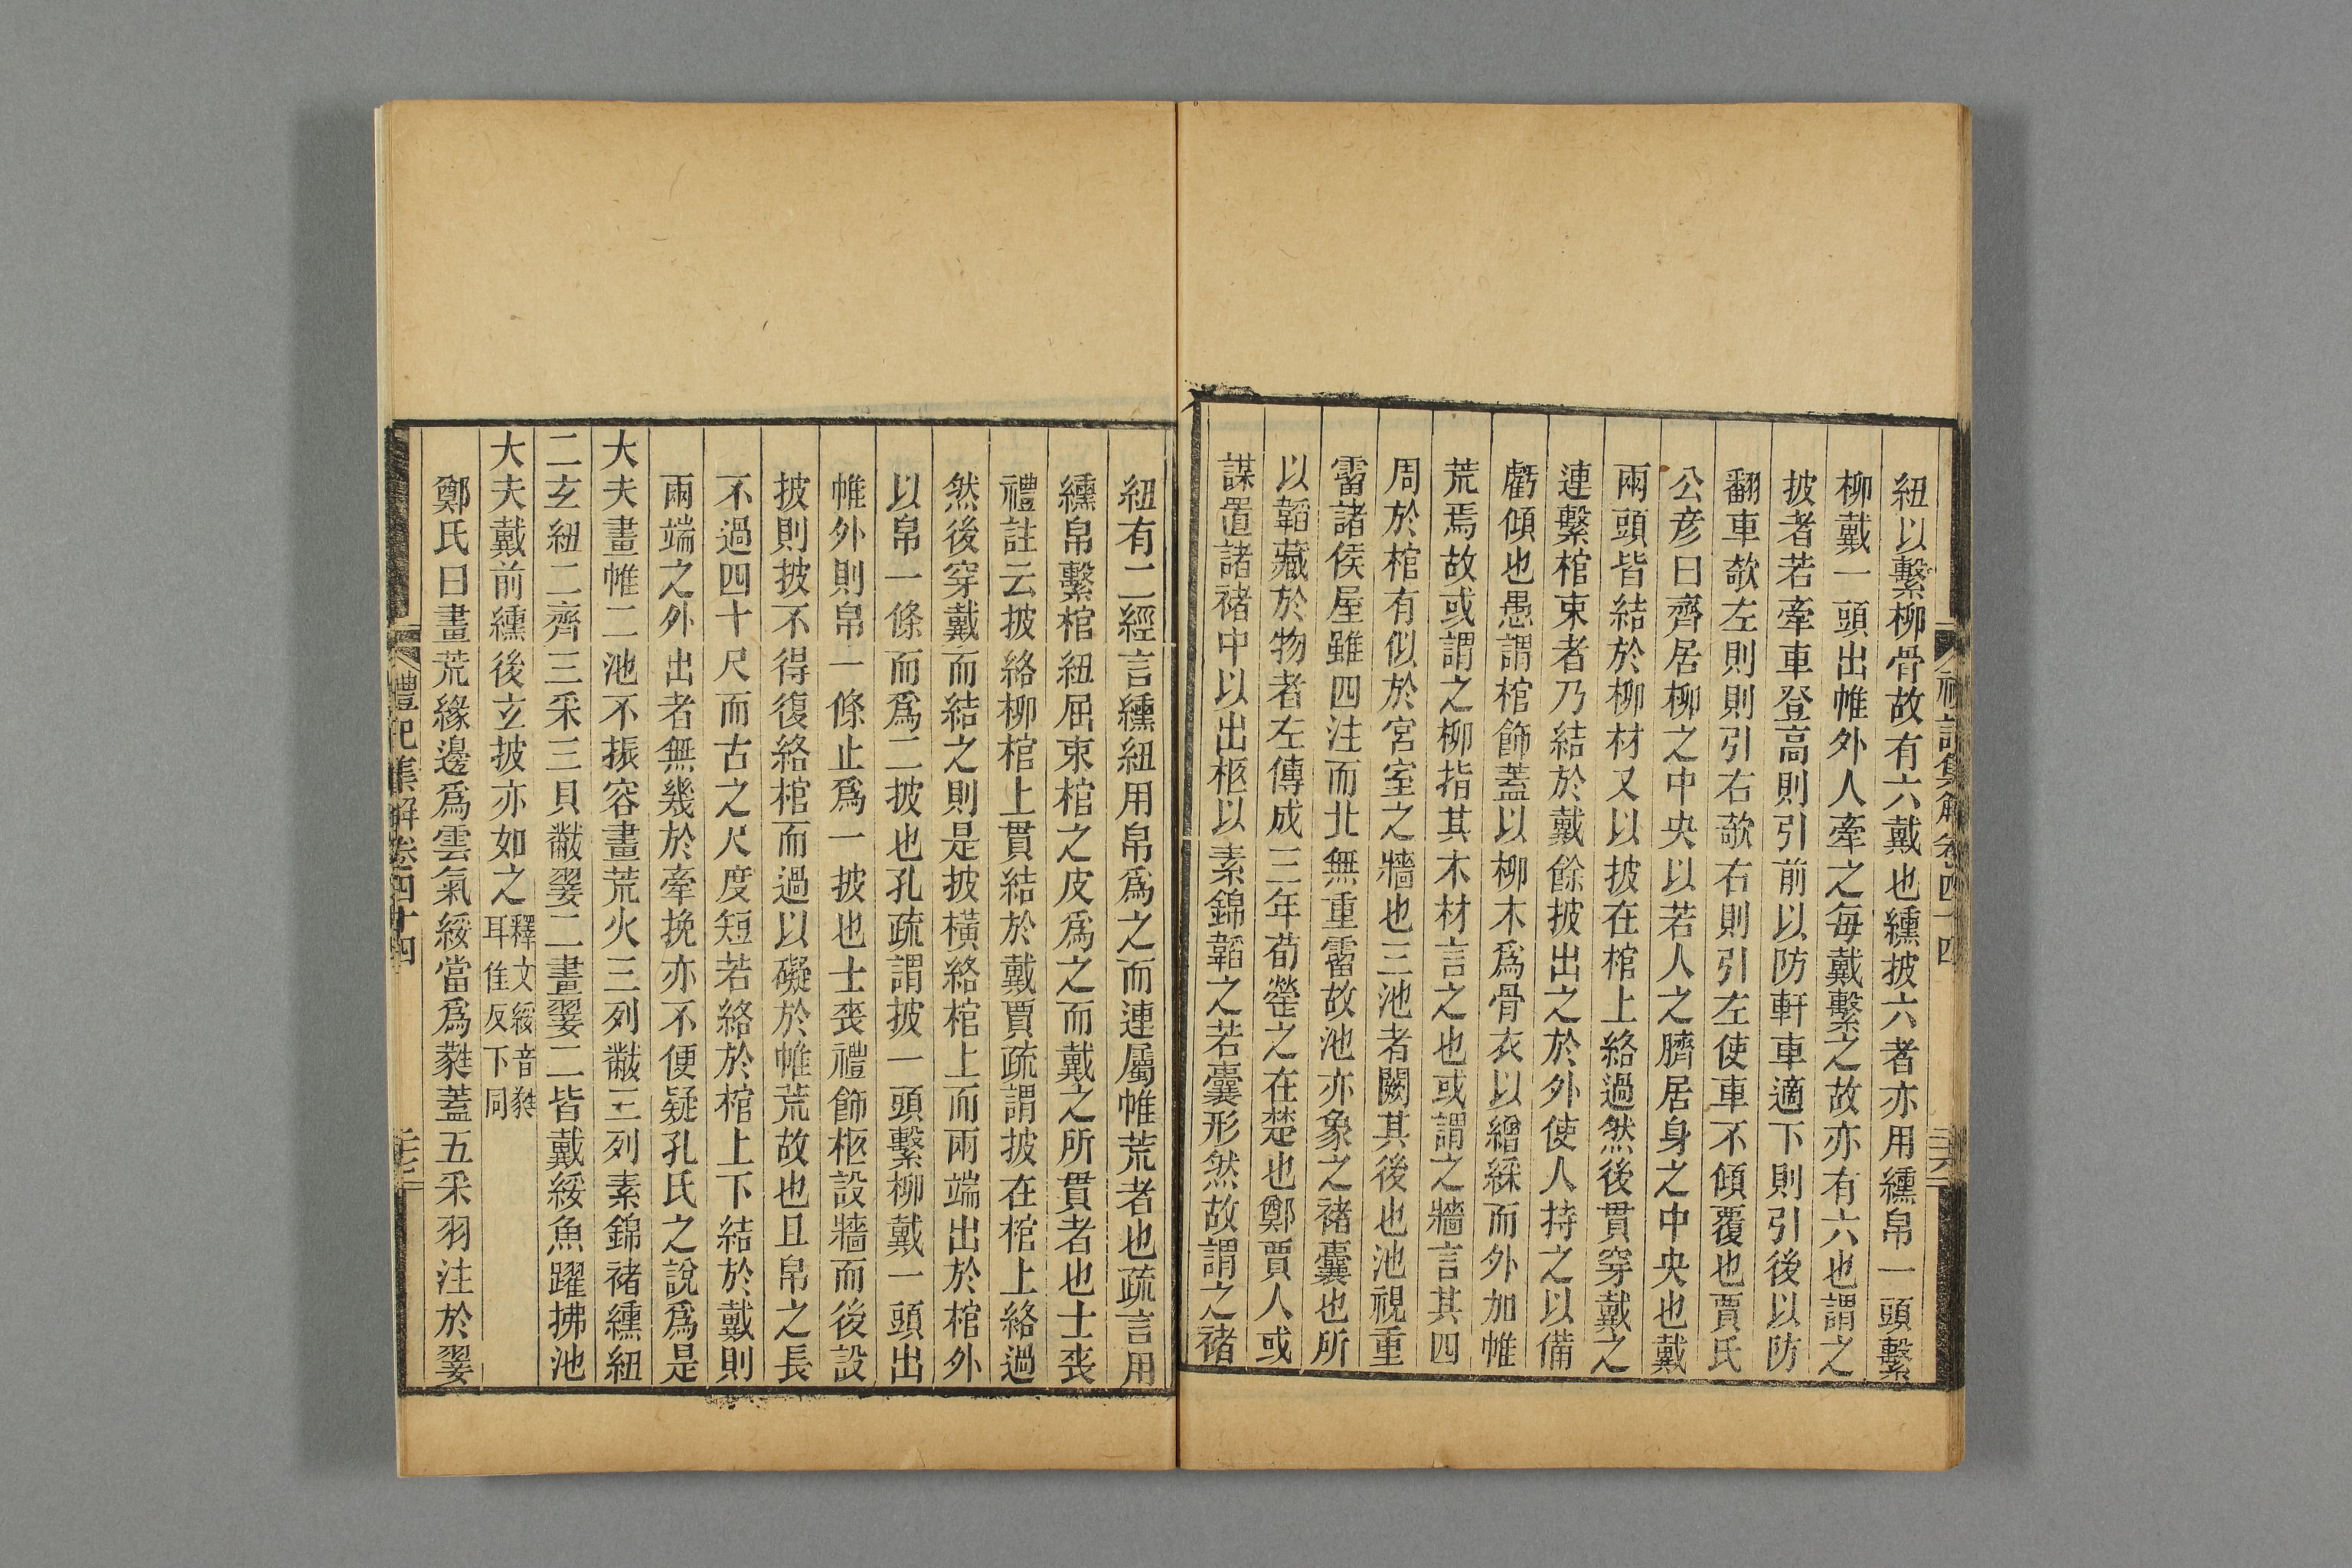 紐以繫柳骨故有六戴也纁披六者亦用纁帛一頭繫
柳戴一頭出帷外人牽之每戴繫之故亦有六也謂之
披者若牽車登高則引前以防軒車適下則引後以防
翻車欹左則引右欹右則引左使車不傾覆也賈氏
公彥曰齊居柳之中央以若人之臍居身之中央也戴
兩頭皆結於柳材又以披在棺上絡過然後貫穿戴之
連繫棺束者乃結於戴餘披出之於外使人持之以備
虧傾也愚謂棺飾蓋以柳木爲骨衣以繒綵而外加帷
荒焉故或謂之柳指其木材言之也或謂之牆言其四
周於棺有似於宮室之牆也三池者闕其後也池視重
霤諸侯屋雖四注而北無重霤故池亦象之褚囊也所
以韜藏於物者左傳成三年荀罃之在楚也鄭賈人或
謀置諸褚中以出柩以素錦韜之若囊形然故謂之褚
禮記集解卷四十四
紐有二經言纁紐用帛爲之而連屬帷荒者也疏言用
纁帛繫棺紐屈束棺之皮爲之而戴之所貫者也士喪
禮註云披絡柳棺上貫結於戴賈疏謂披在棺上絡過
然後穿戴而結之則是披橫絡棺上而兩端出於棺外
以帛一條而爲二披也孔疏謂披一頭繫柳戴一頭出
帷外則帛一條止爲一披也士喪禮飾柩設牆而後設
披則披不得復絡棺而過以礙於帷荒故也且帛之長
不過四十尺而古之尺度短若絡於棺上下結於戴則
兩端之外出者無幾於牽挽亦不便疑孔氏之說爲是
大夫畫帷二池不振容畫荒火三列黻三列素錦褚纁紐
二玄紐二齊三采三貝黻翣二畫翣二皆戴綏魚躍拂池
大夫戴前纁後玄披亦如之釋文綏音蕤耳隹反下同
鄭氏曰畫荒緣邊爲雲氣綏當爲蕤蓋五采羽注於翣
禮記集解卷四十四